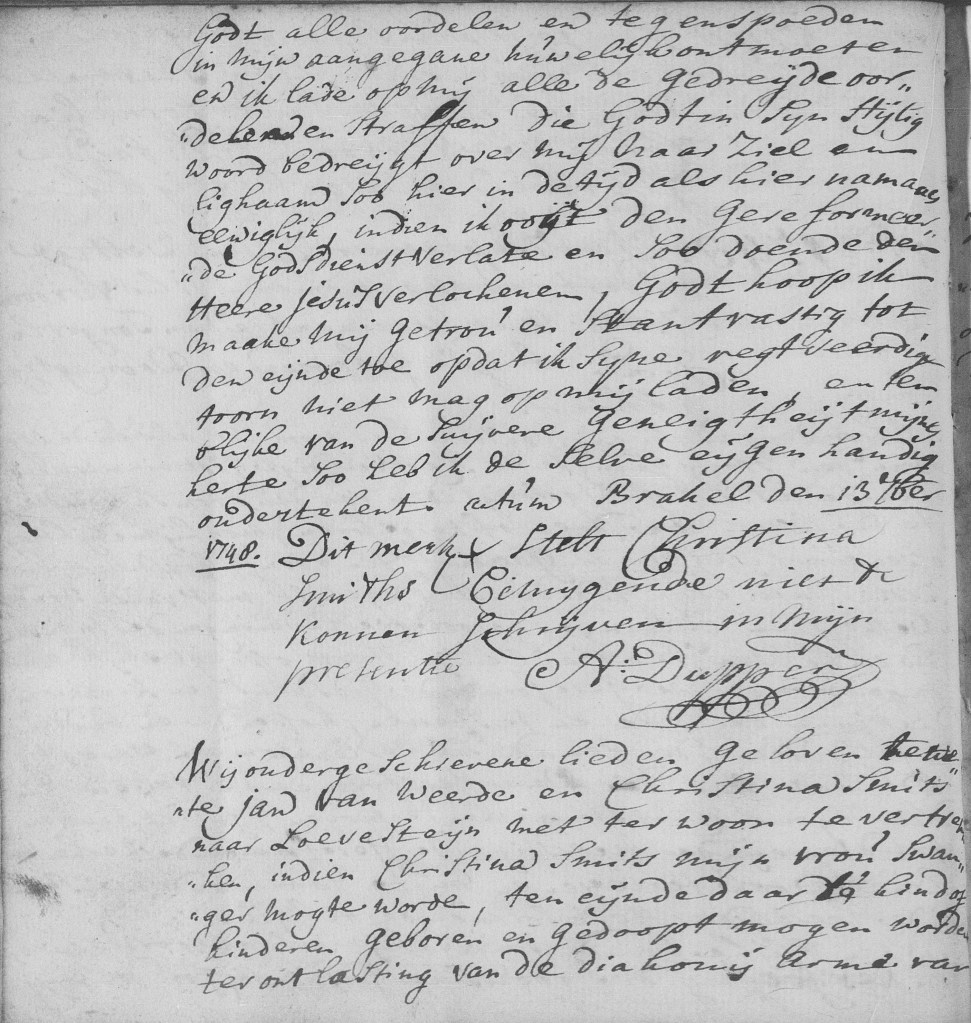 Godt alle oordelen en tegenspoeden
in mijn aangegane huwelijk ontmoeten
en ik lade op mij alle de gedreijde oor„
„delen en Straffen die Godt in Syn Hijlig
woord bedreijgt over mij naar Ziel en
lighaam Soo hier in de tijd als hier namaals
eewiglijk, indien ik ooijt den Gereformeer„
„de Godsdienst verlate en Soo doende den
Heere jesus verlochenen, Godt hoop ik
maake mij getrou en Stantvastig tot
den eijnde toe opdat ik Syne regtveerdige
toorn niet mag op mij laden, en ten
blijke van de Suijvere Geneigtheijt mijns
herte Soo heb ik de Selve eijgenhandig
ondertekent. actum Brakel den 13 7ber
1748. Dit merk X Stelt Christina
Smiths betuygende niet te
konnen Schrijven in mijn
presentie A: Dupper
Wij ondergeschrevene lieden geloven
te jan van Weerde en Christina Smits
naar Loevesteijn met ter woon te vertrek„
„ken, indien Christina Smits mijn vrou Swan„
„ger mogte worde, ten eijnde daar kind of
kinderen geboren en gedoopt mogen worden
ter ontlasting van de diakonij Arme van